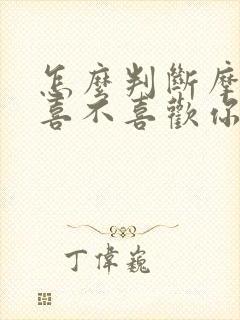 怎麼判斷摩
喜不喜歡你
丁偉巍